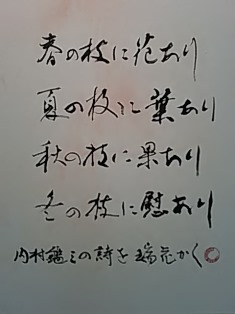 春の枝に花あり
夏の枝に葉あり
秋の枝に果あり
冬の枝に慰あり
内村鑑三の詩を 瑞花かく